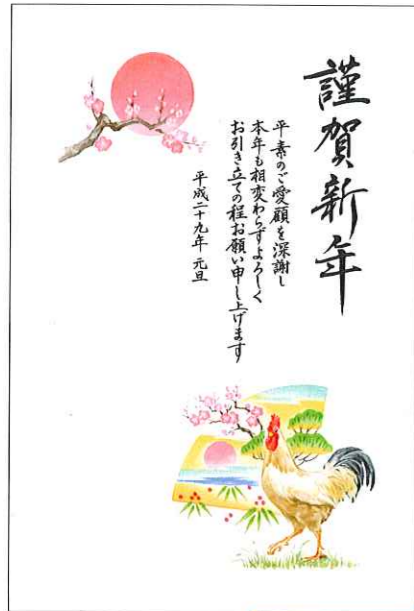 謹賀新年
平素のご愛顧を深謝し
本年も相変わらずよろしく
お引き立ての程お願い申し上げます
平成二十九年 元旦